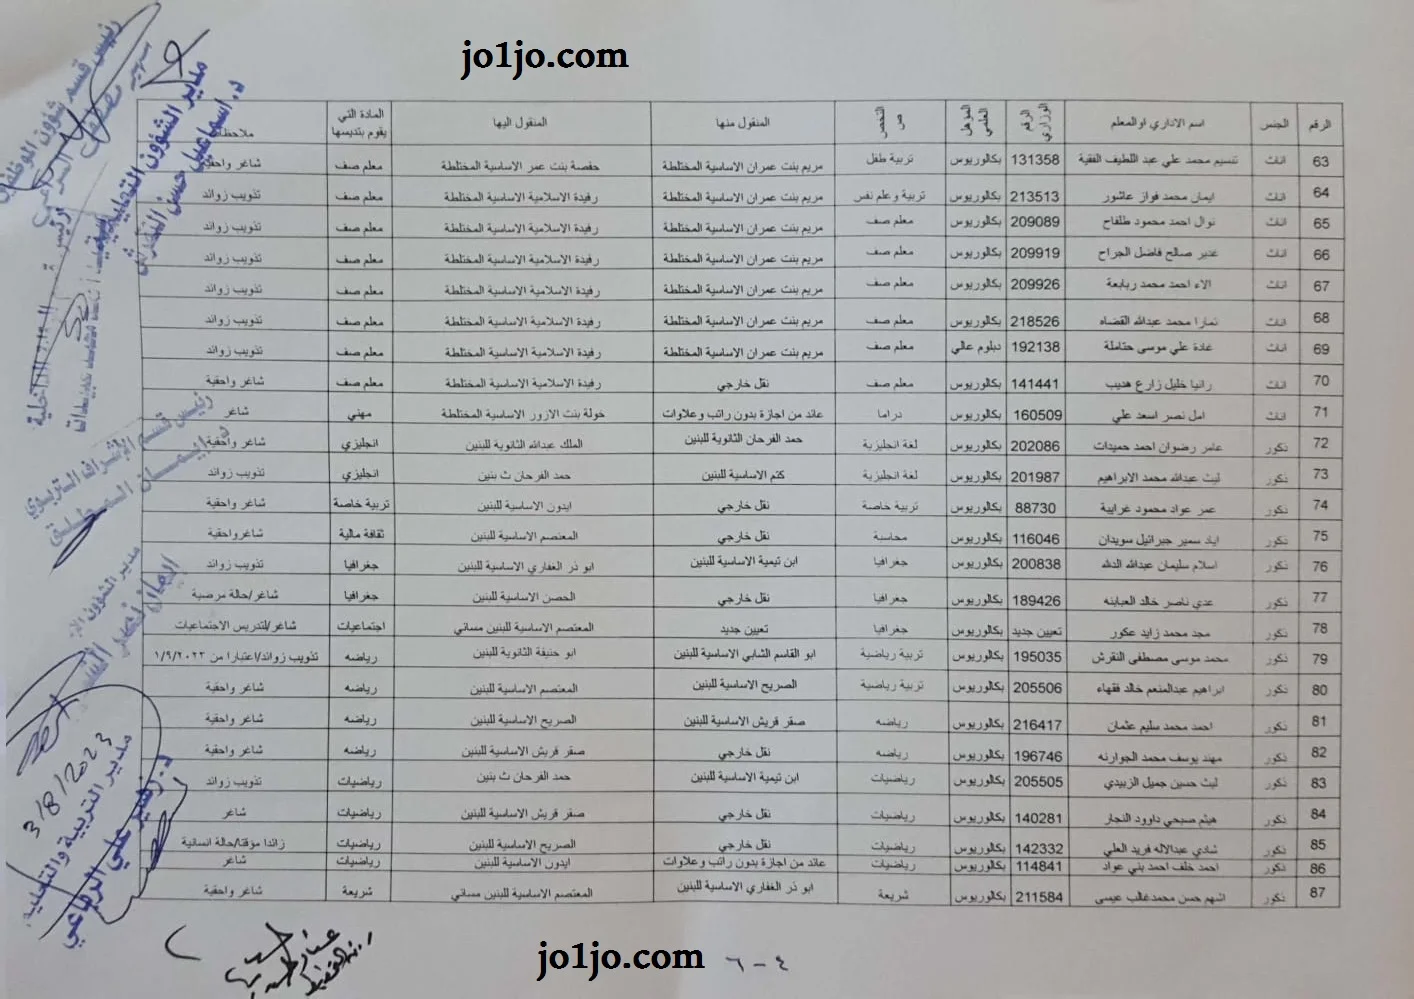 jo1jo.com
الرقم الجنس اسم الاداري او المعلم الرقم الوزاري المؤهل العلمي التخصص المنقول منها المنقول اليها المادة التي يقوم بتدريسها ملاحظات
63 اناث تسنيم محمد علي عبد اللطيف الفقية 131358 بكالوريوس تربية طفل مريم بنت عمران الاساسية المختلطة حفصة بنت عمر الاساسية المختلطة معلم صف شاغر واحقية
64 اناث ايمان محمد فواز عاشور 213513 بكالوريوس تربية وعلم نفس مريم بنت عمران الاساسية المختلطة رفيدة الاسلامية الاساسية المختلطة معلم صف تذويب زوائد
65 اناث نوال احمد محمود طلفاح 209089 بكالوريوس معلم صف مريم بنت عمران الاساسية المختلطة رفيدة الاسلامية الاساسية المختلطة معلم صف تذويب زوائد
66 اناث غدير صالح فاضل الجراح 209919 بكالوريوس معلم صف مريم بنت عمران الاساسية المختلطة رفيدة الاسلامية الاساسية المختلطة معلم صف تذويب زوائد
67 اناث الاء احمد محمد ربابعة 209926 بكالوريوس معلم صف مريم بنت عمران الاساسية المختلطة رفيدة الاسلامية الاساسية المختلطة معلم صف تذويب زوائد
68 اناث تمارا محمد عبدالله القضاه 218526 بكالوريوس معلم صف مريم بنت عمران الاساسية المختلطة رفيدة الاسلامية الاساسية المختلطة معلم صف تذويب زوائد
69 اناث غادة علي موسى حتاملة 192138 دبلوم عالي معلم صف مريم بنت عمران الاساسية المختلطة رفيدة الاسلامية الاساسية المختلطة معلم صف تذويب زوائد
70 اناث رانيا خليل زارع هديب 141441 بكالوريوس معلم صف نقل خارجي رفيدة الاسلامية الاساسية المختلطة معلم صف شاغر واحقية
71 اناث امل نصر اسعد علي 160509 بكالوريوس دراما عائد من اجازة بدون راتب وعلاوات خولة بنت الازور الاساسية المختلطة مهني شاغر
72 ذكور عامر رضوان احمد حميدات 202086 بكالوريوس لغة انجليزية حمد الفرحان الثانوية للبنين الملك عبدالله الثانوية للبنين انجليزي شاغر واحقية
73 ذكور ليث عبدالله محمد الابراهيم 201987 بكالوريوس لغة انجليزية كتم الاساسية للبنين حمد الفرحان ث بنين انجليزي تذويب زوائد
74 ذكور عمر عواد محمود غرايبة 88730 بكالوريوس تربية خاصة نقل خارجي ايدون الاساسية للبنين تربية خاصة شاغر واحقية
75 ذكور اياد سمير جبرائيل سويدان 116046 بكالوريوس محاسبة نقل خارجي المعتصم الاساسية للبنين ثقافة مالية شاغرواحقية
76 ذكور اسلام سليمان عبدالله 200838 بكالوريوس جغرافيا ابن تيمية الاساسية للبنين ابو ذر الغفاري الاساسية للبنين جغرافيا تذويب زوائد
77 ذكور عدي ناصر خالد العبابنه 189426 بكالوريوس جغرافيا نقل خارجي الحصن الاساسية للبنين جغرافيا شاغر/حالة مرضية
78 ذكور مجد محمد زايد عكور تعيين جديد بكالوريوس جغرافيا تعيين جديد المعتصم الاساسية للبنين مسائي اجتماعيات شاغر/لتدريس الاجتماعيات
79 ذكور محمد موسى مصطفى النقرش 195035 بكالوريوس تربية رياضية ابو القاسم الشابي الاساسية للبنين ابو حنيفة الثانوية للبنين رياضه تذويب زوائد/اعتبارا من ١/٩/٢٠٢٣
80 ذكور ابراهيم عبدالمنعم خالد فقهاء 205506 بكالوريوس تربية رياضية الصريح الاساسية للبنين المعتصم الاساسية للبنين رياضه شاغر واحقية
81 ذكور احمد محمد سليم عثمان 216417 بكالوريوس رياضه صقر قريش الاساسية للبنين الصريح الاساسية للبنين رياضه شاغر واحقية
82 ذكور مهند يوسف محمد الجوارنه 196746 بكالوريوس رياضه نقل خارجي صقر قريش الاساسية للبنين رياضه شاغر واحقية
83 ذكور ليث حسين جميل الزبيدي 205505 بكالوريوس رياضيات ابن تيمية الاساسية للبنين حمد الفرحان ث بنين رياضيات تذويب زوائد
84 ذكور هيثم صبحي داوود النجار 140281 بكالوريوس رياضيات نقل خارجي صقر قريش الاساسية للبنين رياضيات شاغر
85 ذكور شادي عبدالاله فريد العلي 142332 بكالوريوس رياضيات نقل خارجي الصريح الاساسية للبنين رياضيات زائدا مؤقتا/حالة انسانية
86 ذكور احمد خلف احمد بني عواد 114841 بكالوريوس رياضيات عائد من اجازة بدون راتب وعلاوات ايدون الاساسية للبنين رياضيات شاغر
87 ذكور اشهم حسن محمدغالب عيسى 211584 بكالوريوس شريعة ابو ذر الغفاري الاساسية للبنين المعتصم الاساسية للبنين مسائي شريعة شاغر واحقية
رئيس قسم شؤون الموظفين
مدير الشؤون التعليمية
د. اسماعيل حسن
رئيس قسم الإشراف التربوي
مدير الشؤون
3/8/2023
مدير التربية والتعليم
jo1jo.com
٤ - ٦